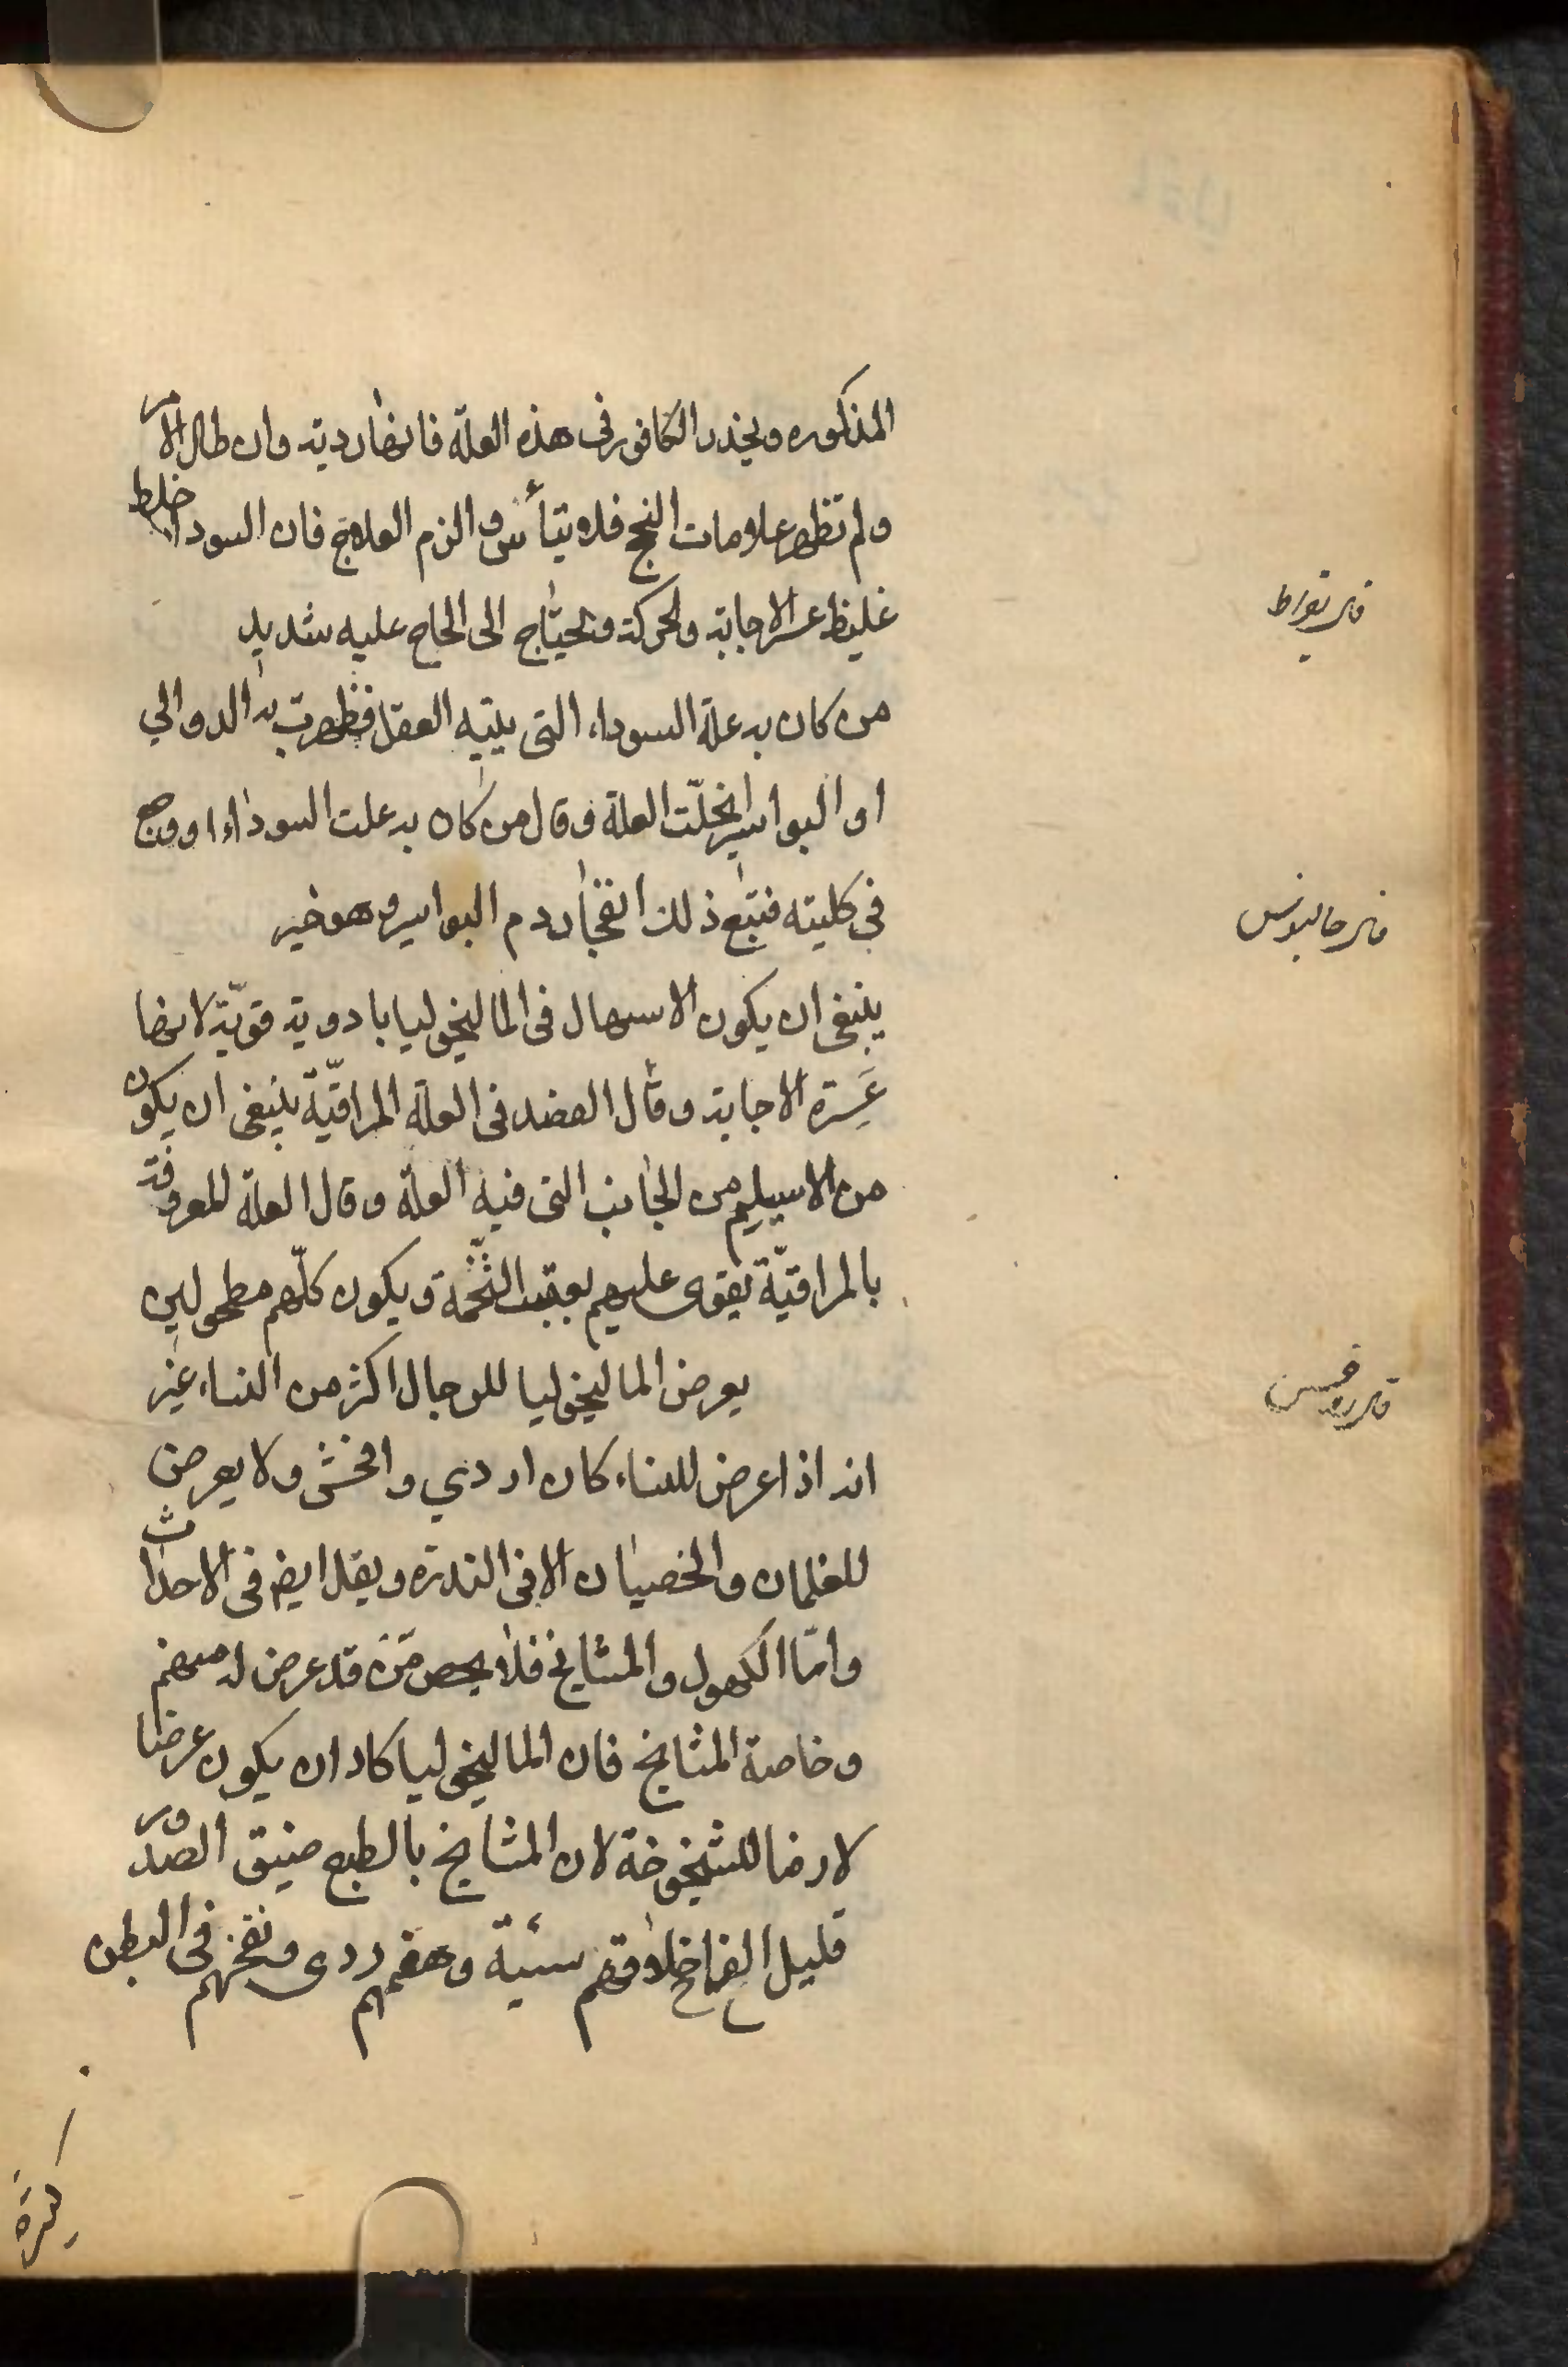 المذكوره ويحذر الكافور فى هذه العلّة فانها رديّة وان طال الامر
ولم تظهر علامات النجح فلا يتأس والزم العلاج فان السوداء خلط
غليظ عسر الاجابة والحركة وتحتاج الى الحاح عليه شديد
قال بقراط
من كان به علة السوداء التى بليّه العقل فظهرت به الدوالي
او البواسير انحلّت العلة وقال من كان به علت السوداء او وجع
في كليته فتبع ذلك انفجار دم البواسير وهو خير
قال جالينوس
ينبغى ان يكون الاسهال فى الماليخوليا بادوية قويّة لانها
عَسِرة الاجابة وقال الفصد فى العلة المراقيّة ينبغى ان يكون
من الاسيليم من الجانب التى فيه العلّة وقال العلّة المعروفة
بالمراقيّة يقوى عليهم بعقب التّخمة ويكون كلّهم مطحولين
قال روفس
يعرض الماليخوليا للرجال اكثر من النساء غير
انه اذا عرض للنساء كان اردي وافحش ولا يعرض
للغلمان والخصيان الا فى الندرة ويقل ايض فى الاحداث
وامّا الكهول والمشايخ فلا يحص مَن قد عرض له منهم
وخاصة المشايخ فان الماليخوليا كاد ان يكون عرضا
لازما للشيخوخة لان المشايخ بالطبع ضيق الصّدور
قليل الفرح اخلاقهم سيئة وهضمهم ردى ونفخهم فى البطن
كثرة